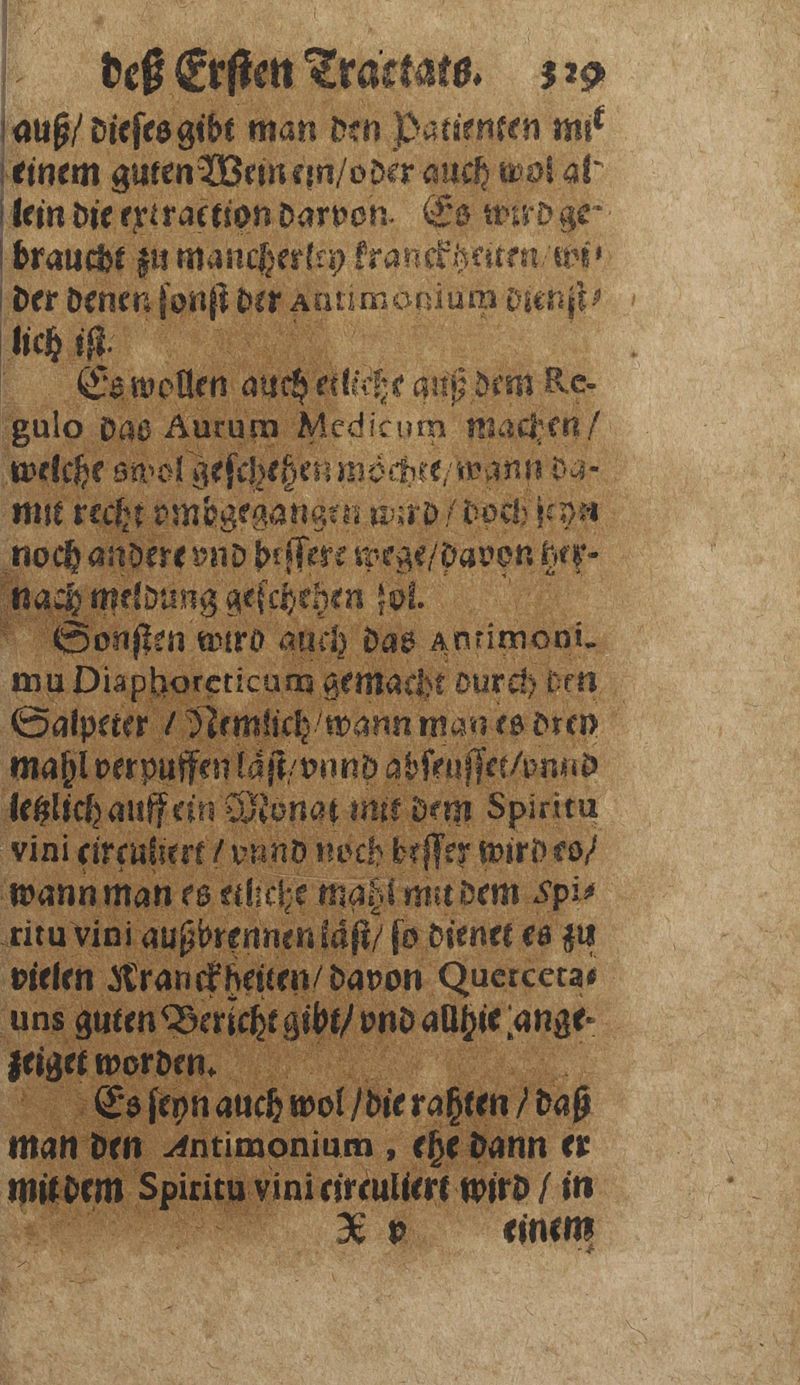 deß Ersten Tractats. 329
auß/ dieses gibt man den Patienten mit
einem guten Wein ein/oder auch wol al-
lein die extraction darvon. Es wird ge-
braucht zu mancherley kranckheiten/wi-
der denen sonst der Antimonium dienst-
lich ist.
Es wollen auch etliche auß dem Re-
gulo das Aurum Medicum machen/
welche swol geschehen möchte/wann da-
mit recht vmbgegangen wird/doch seyn
noch andere vnd bessere wege/davon her-
nach meldung geschehen sol.
Sonsten wird auch das Antimoni-
mu Diaphoreticum gemacht durch den
Salpeter / Nemlich/wann man es drey
mahl verpuffen läst/vnnd abseusset/vnnd
letzlich auff ein Monat mit dem Spiritu
vini circuliert / vnnd noch besser wird es/
wann man es etliche mahl mit dem Spi-
ritu vini außbrennen läst/ so dienet es zu
vielen Kranckheiten/ davon Quercera-
uns guten Bericht gibt/ vnd allhie ange-
zeiget worden.
Es seyn auch wol /die rahten / daß
man den Antimonium , ehe dann er
mit dem Spiritu vini circuliert wird / in
X v einem